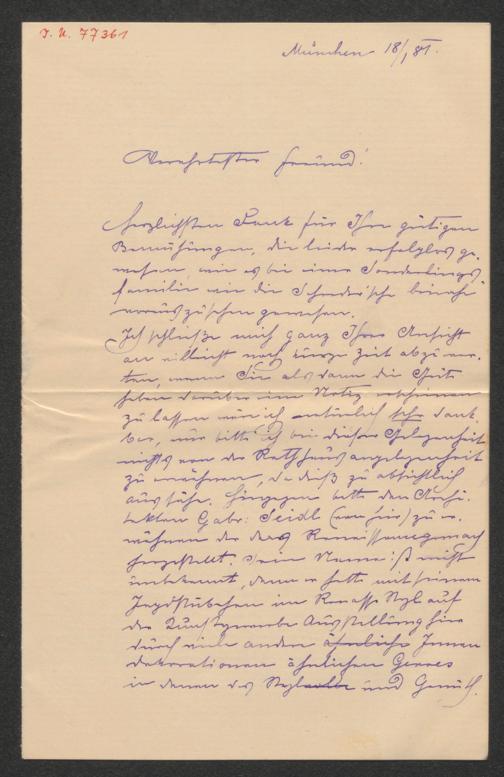 J. N. 77361
München 18/1 81.
Verehrtester Freund!
Herzlichsten Dank für Ihre gütigen
Bemühungen, die leider erfolglos ge-
wesen, wie es bei einer Sonderlings
familie wie die beinahe
vorauszusehen gewesen.
Ich schließe mich ganz Ihrer Ansicht
an vielleicht noch kurze Zeit abzuwar-
ten, wenn Sie alsdann die Güte
haben darüber eine Notiz erscheinen
zu lassen wäre ich natürlich sehr dank-
bar, nur bitte ich bei dieser Gelegenheit
nichts von der Rathhausangelegenheit
zu erwähnen, da dieß zu absichtlich
aussähe. Hingegen bitte den Archi-
tekten Gabr: Seidl (von hier) zu er-
wähnen der das Renaissancegemach
hergestellt. Sein Name ist nicht
unbekannt, denn er hatte mit seinem
im Renaiss Styl auf
der Kunstgewerbe Ausstellung hier
durch viele andere ähnliche Innen
dekorationen ähnlichen Genres
in denen das Styl und Gemüth